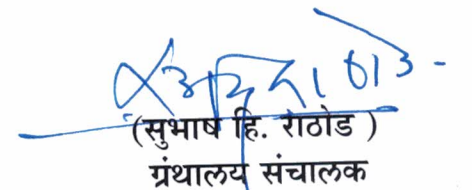 (सुभाष हि. राठोड )
ग्रंथालय संचालक